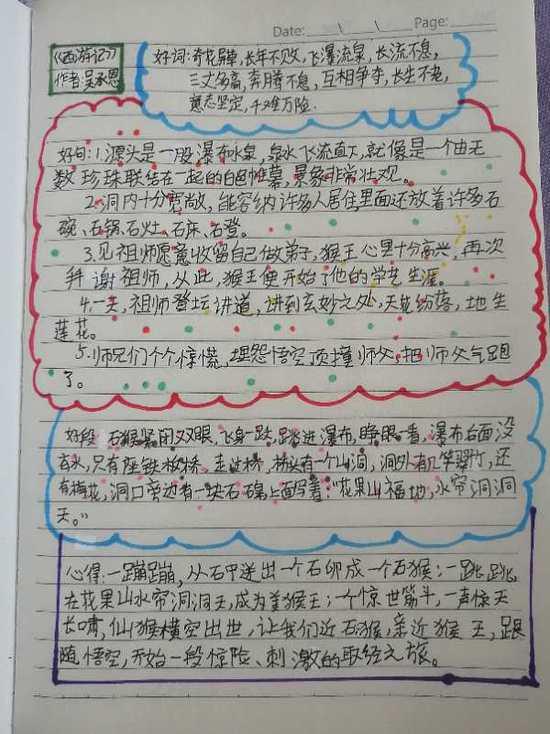 Date:
Page:
《西游记》
作者:吴承恩
好词:奇花异草,长年不败,飞瀑流泉,长流不息,
三丈多高,奔腾不息,互相争夺,长生不老,
意志坚定,千难万险.
好句:1.源头是一股瀑布水泉,泉水飞流直下,就像是一个由无
数珍珠联结在一起的白色帷幕,景象非常壮观。
2.洞内十分宽敞,能容纳许多人居住里面还放着许多石
碗、石锅、石灶、石床、石登。
3.见祖师愿意收留自己做弟子,猴王心里十分高兴,再次
拜谢祖师,从此,猴王便开始了他的学艺生涯。
4.一天,祖师登坛讲道,讲到玄妙之处,天花纷落,地生
莲花。
5.师兄们个个惊慌,埋怨悟空顶撞师父,把师父气跑
了。
好段 石猴紧闭双眼,飞身一跃,跳进瀑布,睁眼一看,瀑布后面没
有水,只有座铁板桥。走过桥,桥头有一个山洞,洞外有几竿翠竹,还
有梅花,洞口旁边有一块石碑上面写着:“花果山福地,水帘洞洞
天。”
心得:一蹦蹦,从石中迸出一个石卵成一个石猴;一跳跳,
在花果山水帘洞洞王,成为美猴王;一个惊世筋斗,一声惊天
长啸,仙猴横空出世,让我们近石猴,亲近猴王,跟
随悟空,开始一段惊险、刺激的取经之旅。